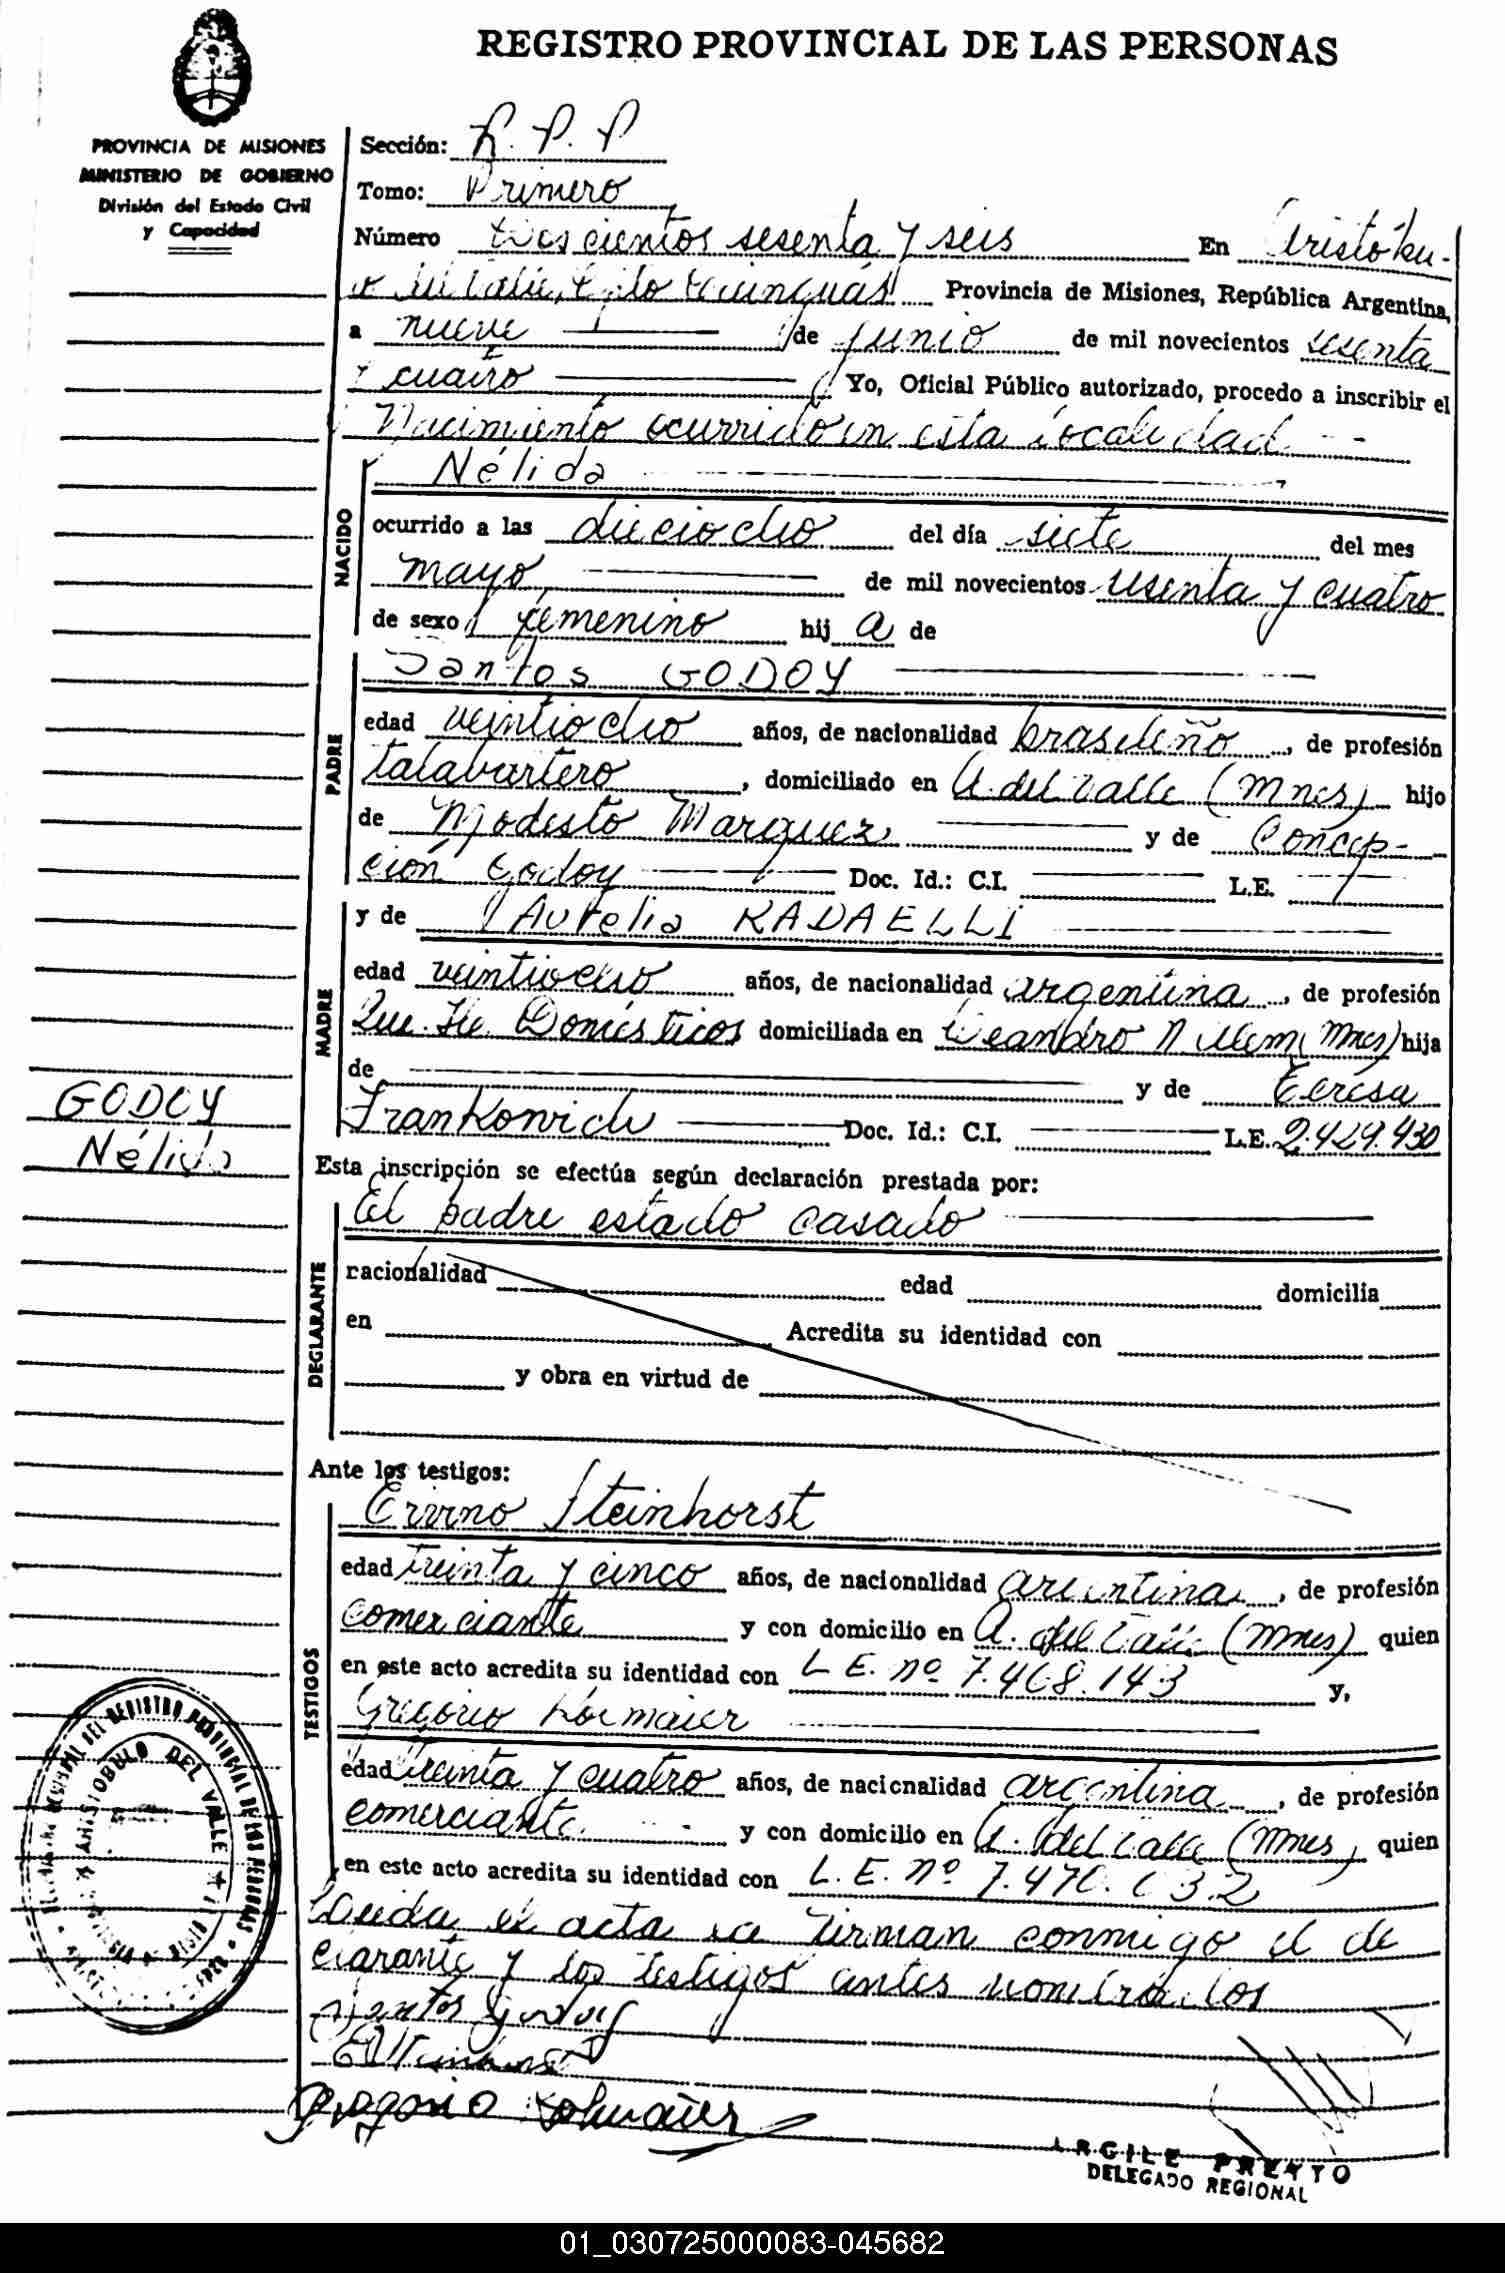 REGISTRO PROVINCIAL DE LAS PERSONAS
PROVINCIA DE MISIONES
MINISTERIO DE GOBIERNO
División del Estado Civil
y Capacidad
Sección: R. P. P
Tomo: Primero
Número trescientos sesenta y seis En Aristóbu-
lo del Valle, Provincia de Misiones, República Argentina,
a nueve de junio de mil novecientos sesenta
y cuatro Yo, Oficial Público autorizado, procedo a inscribir el
Nacimiento ocurrido en esta localidad
NACIDO
Nélida
ocurrido a las dieciocho del día siete del mes
mayo de mil novecientos sesenta y cuatro
de sexo femenino hij a de
PADRE
Santos GODOY
edad veintiocho años, de nacionalidad brasileño, de profesión
talabartero, domiciliado en A. del Valle (Mnes) hijo
de Modesto Marquez y de Concep-
ción Godoy Doc. Id.: C.I. L.E.
MADRE
y de Aurelia RADAELLI
edad veintiocho años, de nacionalidad argentina, de profesión
Que. He. Domésticos domiciliada en Leandro N Alem (Mnes) hija
de y de Teresa
Frankowich Doc. Id.: C.I. L.E. 2.429.430
GODOY
Nélida
Esta inscripción se efectúa según declaración prestada por:
DECLARANTE
El padre estado casado
nacionalidad edad domicilia
en Acredita su identidad con
y obra en virtud de
Ante los testigos:
TESTIGOS
Ervino Steinhorst
edad treinta y cinco años, de nacionalidad argentina, de profesión
comerciante y con domicilio en A. del Valle (Mnes) quien
en este acto acredita su identidad con L E. nº 7.468.143 y,
Gregorio
edad treinta y cuatro años, de nacionalidad argentina, de profesión
comerciante y con domicilio en A. del Valle (Mnes) quien
en este acto acredita su identidad con L. E. nº 7.470.032
Leída el acta la firman conmigo el de
clarante y los testigos antes nombrados
Santos Godoy
Gregorio
DEL REGISTRO PROVINCIAL DE LAS PERSONAS
ARISTOBULO DEL VALLE
DELEGADO REGIONAL
01_030725000083-045682